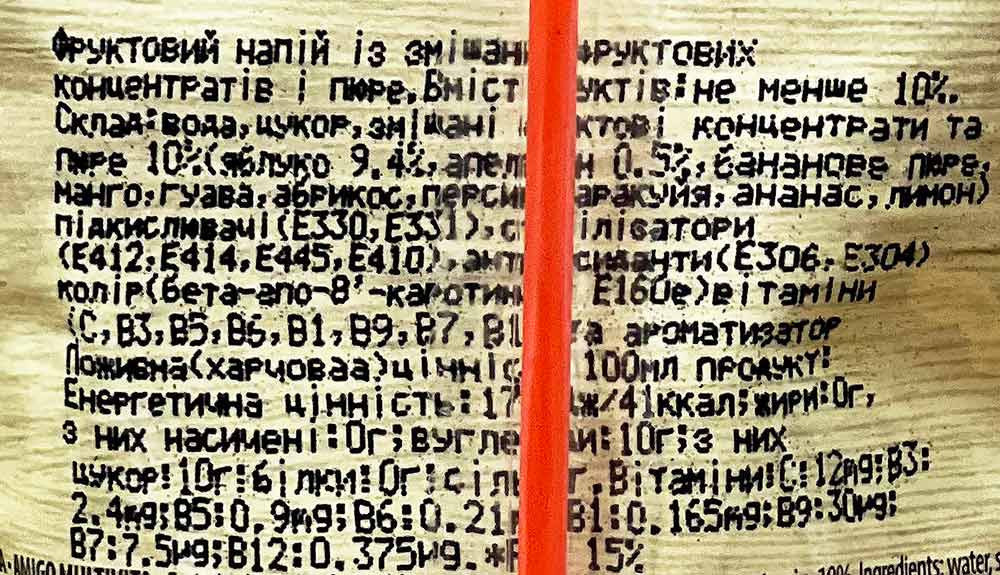 Фруктовий напій із зміша фруктових
концентратів і пюре.Вміст уктів:не менше 10%.
Склад:вода,цукор,змішані ктові концентрати та
пюре 10%(яблуко 9.4%,апел н 0.5%,бананове пюре,
манго,гуава,абрикос,перси аракуйя,ананас,лимон)
підкислювачі(Е330,Е331),с ілізатори
(Е412,Е414,Е445,Е410),ант сиданти(Е306,Е304)
колір(бета-апо-8'-каротин Е160е)вітаміни
(С,В3,В5,В6,В1,В9,В7,В1 та ароматизатор
Поживна(харчоваа)цінніс 100мл продукт:
Енергетична цінність:17 дж/41ккал;жири:0г,
з них насичені:0г;вугле и:10г;з них
цукор:10г:білки:0г:сіль г.Вітаміни:С:12mg;В3:
2.4mg;В5:0.9mg;В6:0.21 В1:0.165mg;В9:30µg;
В7:7.5µg;В12:0.375µg.* 15%
AMIGO 10% Ingredients: water,